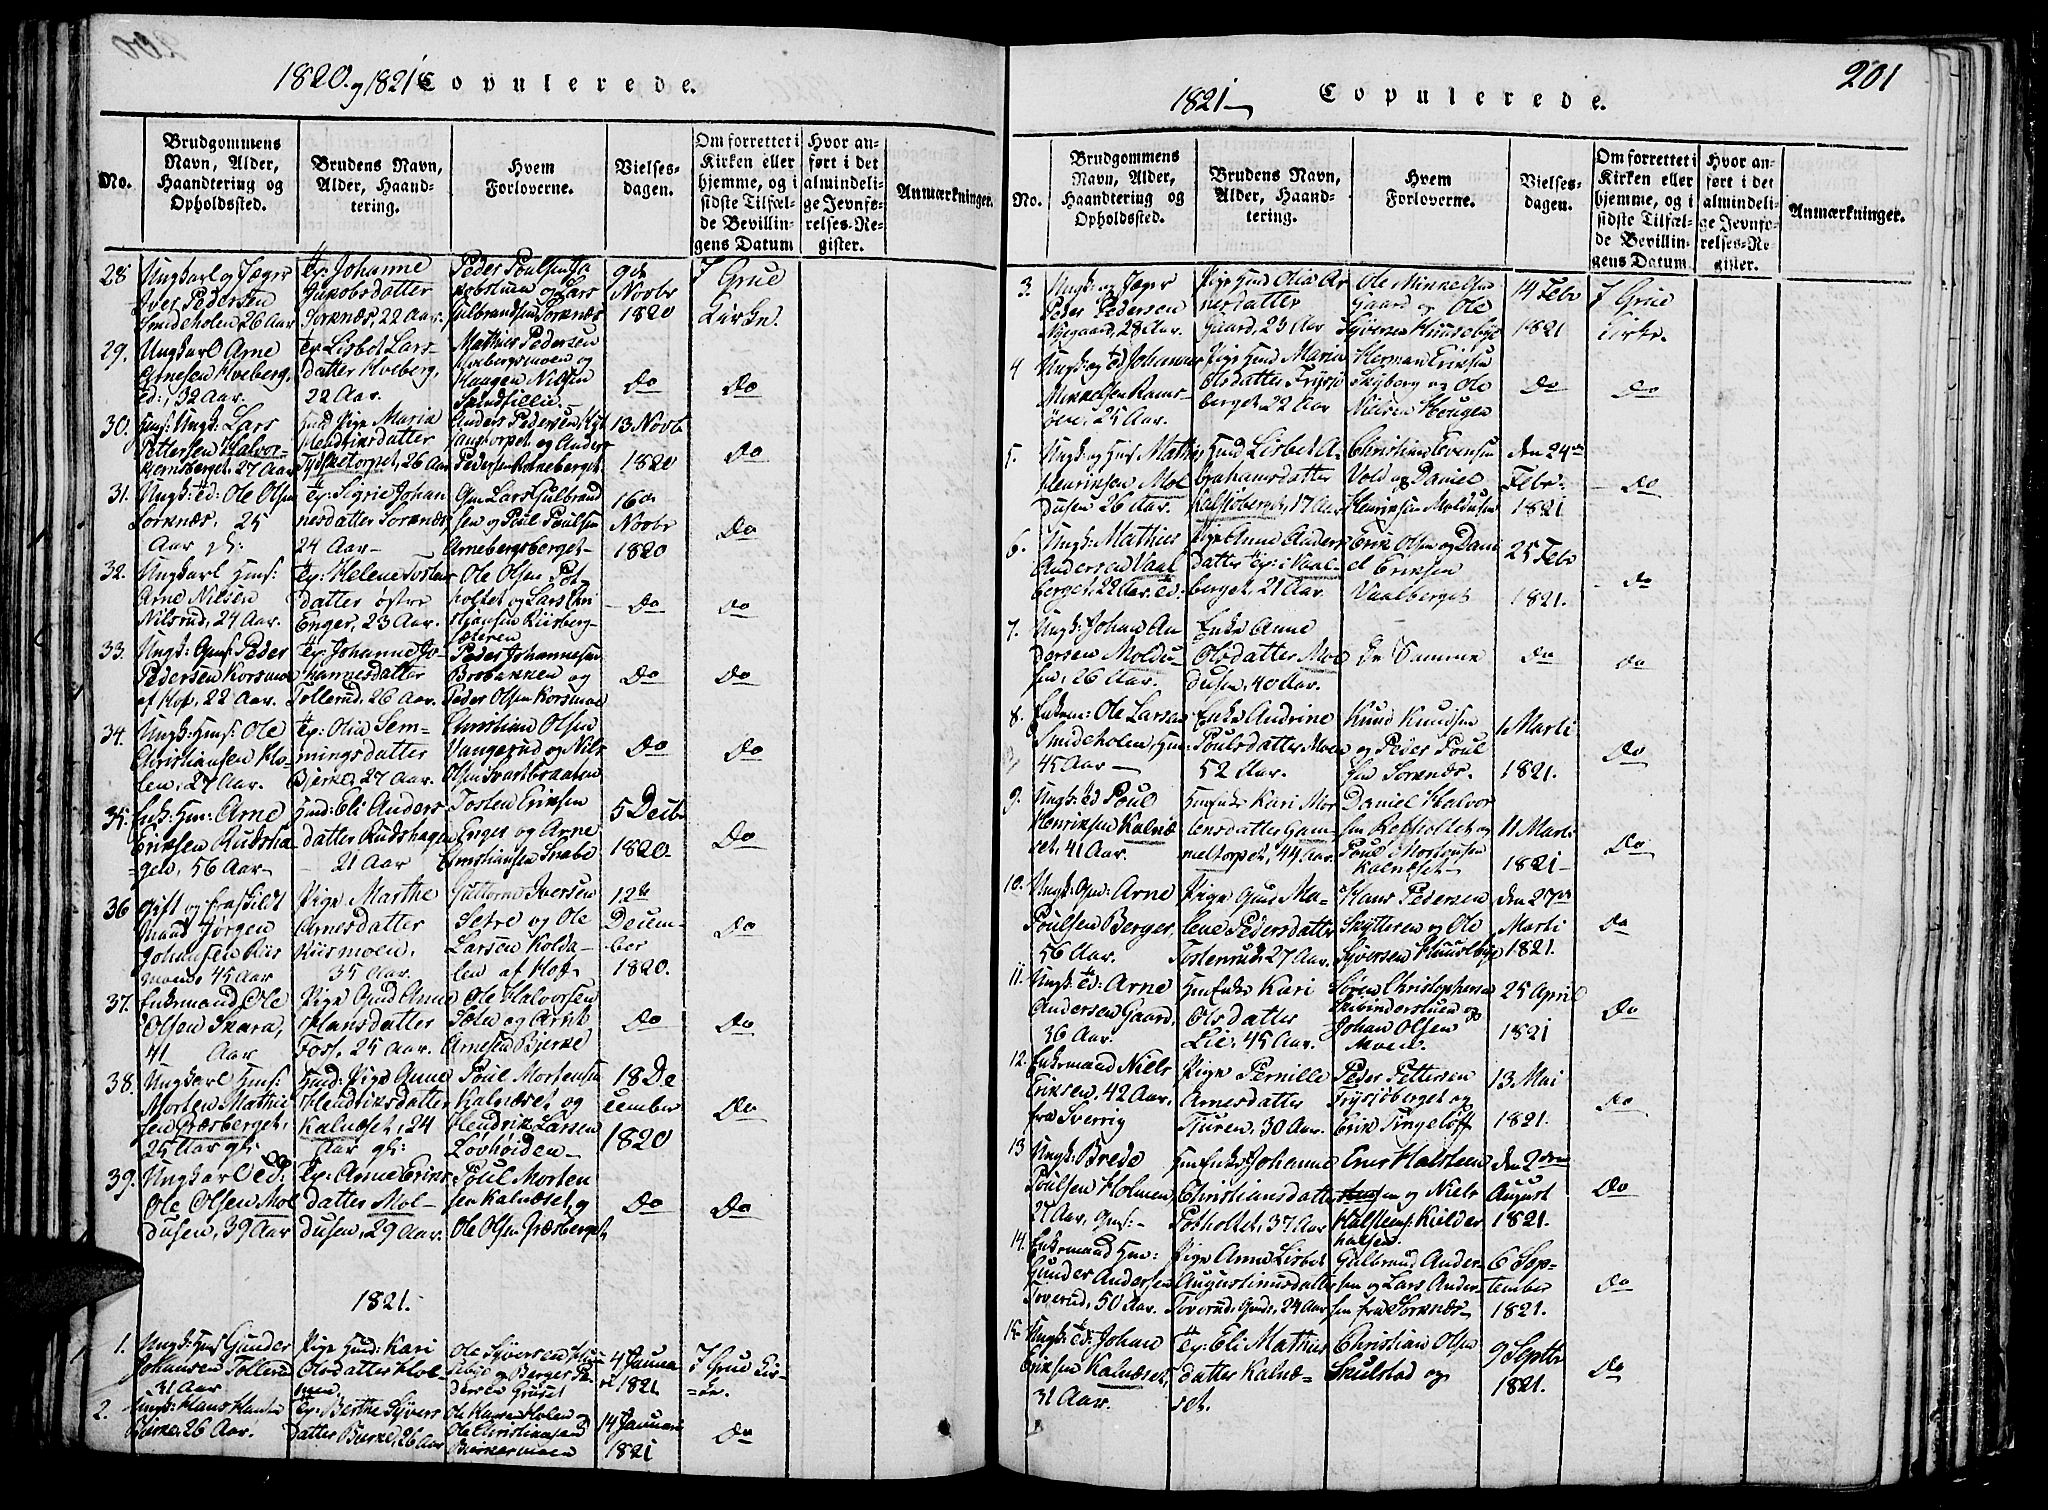 1820. og 1821 Copulerede.
No.
Brudgommens
Navn, Alder,
Haandtering og
Opholdssted.
Brudens Navn,
Alder, Haand-
tering.
Hvem
Forloverne.
Vielses-
dagen.
Om forrettet i
Kirken eller
hjemme, og i
sidste Tilfæl-
de Bevillin-
gens Datum
Hvor an-
ført i det
almindeli-
ge Jevnfø-
relses-Re-
gister.
Anmærkninger.
28 Ungkarl og Jæger
Iver Pedersen
Smideholen, 26 Aar
Johanne
Jakobsdatter
Sorknæs, 22 Aar.
Peder Poulsen
og Lars
Gulbrandsen Sorknæs
9de
Novbr
1820
I Grue
Kirke.
29. Ungkarl Arne
Arnesen Hveberg,
32 Aar.
Lisbet Lars-
datter Hveberg,
22 Aar.
Mathis Pedersen
og
Haagen Nilsen
Do
Do
30. Ungk: Lars
Pettersen Halvor-
berget, 27 Aar
Pige Maria
Hendriksdatter
Tysketorpet, 26 Aar
Anders Pedersen
og Anders
Pedersen
13 Novbr
1820
Do
31. Ungk: Ole Olsen
Sorknæs, 25
Aar gl:
Sigrie Johan
nesdatter Sorknæs
24 Aar
Lars Gulbrand
sen og Poul Poulsen
Arnebergsberget
16de
Novbr
1820
Do
32. Ungkarl
Arne Nilsen
Nilsrud, 24 Aar.
Helene Tosten
datter østre
Enger, 23 Aar.
Ole Olsen Pot
holtet og Lars
Riisberg-
sæteren
Do
Do
33. Ungk: Peder
Pedersen Korsmoe
af Hof, 22 Aar.
Johanne Jo-
hannesdatter
Tollerud, 26 Aar.
Peder Johannesen
Brobakken og
Peder Olsen Korsmoe
Do
Do
34. Ungk: Ole
Christiansen Ho-
len, 27 Aar.
Olia Sem-
mingsdatter
Bjerke, 27 Aar.
Christian Olsen
Vangerud og Nils
Olsen Svartbraaten
Do
Do
35. Arne
Eriksen Rudsha-
gen, 56 Aar
Eli Anders
datter Rudshagen
21 Aar
Tosten Eriksen
Enger og Arne
Christiansen Snabe
5 Decbr
1820
Do
36 Gift og fraskildt
Mand Jørgen
Johansen Riis
moen, 45 Aar
Pige Marthe
Arnesdatter
Riismoen,
35 Aar.
Guttorm Iversen
Sætre og Ole
Larsen Kolda-
len af Hof
12te
Decem-
ber
1820.
Do
37. Enkemand Ole
Olsen Skara,
41 Aar
Pige Anne
Hansdatter
Fos, 25 Aar.
Ole Halvorsen
Sæter og
Arnesen Bjerke
Do
Do
38. Ungkarl
Morten Mathie
sen Græsberget,
25 Aar gl:
Pige Anne
Hendriksdatter
Kalnæset, 24
Aar gl:
Poul Mortensen
Kalnæset og
Hendrik Larsen
Løvhøiden
18 De
cember
1820
Do
39. Ungkarl
Ole Olsen Mol
dusen, 39 Aar
Anne Eriks
datter Mol-
dusen, 29 Aar.
Poul Morten
sen Kalnæset, og
Ole Olsen Græsberget
Do
Do
1821.
1. Gunder
Johansen Tollerud
31 Aar
Pige Kari
Olsdatter Hol-
men
Ole Syversen
og Berger
4 Janua
1821
I Grue Kir-
ke.
2. Ungk: Hans Hansen
Bierke, 26 Aar.
Berthe Syvers
datter Bierke, 26 Aar
Ole Hansen Holen og
Ole Christiansen
Bierkesmoen
14 Januari
1821
Do
201
1821 Copulerede.
No.
Brudgommens
Navn, Alder,
Haandtering og
Opholdssted.
Brudens Navn,
Alder, Haand-
tering.
Hvem
Forloverne.
Vielses-
dagen.
Om forrettet i
Kirken eller
hjemme, og i
sidste Tilfæl-
de Bevillin-
gens Datum
Hvor an-
ført i det
almindeli-
ge Jevnfø-
relses-Re-
gister.
Anmærkninger.
3. Ungk: og Jæger
Peder Pedersen
Nyegaard, 28 Aar.
Pige Olia Ar
nesdatter
Gaard, 23 Aar
Ole Mikkelsen
Gaard og Ole
Syversen Huuseby
14 Febr
1821
I Grue
Kirke.
4 Johannes
Mikkelsen
25 Aar.
Pige Maria
Olsdatter Frysjø
berget 22 Aar
Herman Eriksen
Skyberg og Ole
Haugen
Do
Do
5. Ungk: og Mathis
Henriksen Mol
dusen 26 Aar.
Lisbet A-
brahamsdatter
Kalsjøberget, 17 Aar
Christian Evensen
Vold og Daniel
Henriksen Moldusen
den 24de
Febr.
1821
Do
6. Ungk: Mathies
Andersen Vaal
berget, 22 Aar.
Pige Anne Anders
datter Vaal-
berget, 21 Aar.
Erik Olsen og Dani
el Eriksen
Vaalberget
25 Febr
1821.
Do
7. Ungk: Johan An
dersen Moldu-
sen, 26 Aar.
Enke Anne
Olsdatter Mol
dusen, 40 Aar.
De Samme
Do
Do
8. Ole Larsen
Smideholen
45 Aar
Enke Andrine
Poulsdatter Moen
52 Aar.
Knud Knudsen
og Peder Poul
sen Sorknæs.
1 Marti
1821.
Do
9. Ungk: Poul
Henriksen Kalnæ
set, 41 Aar.
Kari Mor
tensdatter Gam-
meltorpet, 44 Aar.
Daniel Halvor
sen og
Poul Mortensen
Kalnæset
11 Marti
1821
Do
10. Ungk: Arne
Poulsen Berger,
56 Aar.
Pige Ma-
lene Pedersdatter
Tostenrud, 27 Aar.
Hans Pedersen
Skytteren og Ole
Syversen Huuseby
den 27de
Marti
1821.
Do
11. Arne
Andersen Gaard,
36 Aar.
Kari
Olsdatter
Lie, 45 Aar.
Søren Christophersen
og
Johan Olsen
Moen.
25 April
1821
Do
12. Enkemand Niels
Eriksen, 42 Aar,
fra Sverrig
Pige Pernille
Arnesdatter
Tjuren, 30 Aar.
Peder Pettersen
Frysjøberget og
Erik Tingeløff
13 Mai
1821.
Do
13 Ungk: Brede
Poulsen Holmen
27 Aar,
Johanne
Christiansdatter
Potholtet, 37 Aar
Ener Halsteen
sen og Niels
Halsteens: Kielder
halsen.
den 2den
August
1821.
Do
14. Enkemand
Gunder Andersen
Toverud, 50 Aar.
Pige Anne Lisbet
Augustinusdatter
Toverud, 24 Aar
Gulbrand Ander-
sen og Lars Ander-
sen fra Sorknæs
6 Sep-
tember
1821.
Do
15. Johan
Eriksen Kalnæset,
31 Aar.
Eli Mathis
datter Kalnæ-
set.
Christian Olsen
Skulstad og
9 Septbr
1821.
Do